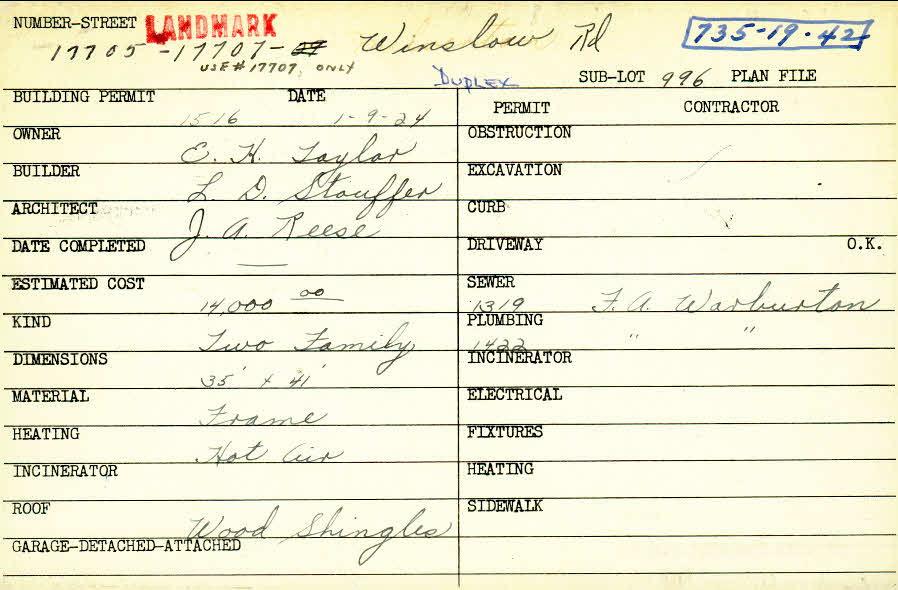 NUMBER-STREET LANDMARK
17705-17707-09 Winslow Rd 735-19-42
USE #17707 ONLY
DUPLEX SUB-LOT 996 PLAN FILE
BUILDING PERMIT DATE PERMIT CONTRACTOR
1516 1-9-24
OWNER OBSTRUCTION
E. H. Taylor
BUILDER EXCAVATION
L. D. Stouffer
ARCHITECT CURB
J. A. Reese
DATE COMPLETED — DRIVEWAY O.K.
ESTIMATED COST SEWER
14,000 00 1319 F. A. Warburton
KIND PLUMBING
Two Family 1422 " "
DIMENSIONS INCINERATOR
35' x 41'
MATERIAL ELECTRICAL
Frame
HEATING FIXTURES
Hot Air
INCINERATOR HEATING
ROOF SIDEWALK
Wood Shingles
GARAGE-DETACHED-ATTACHED